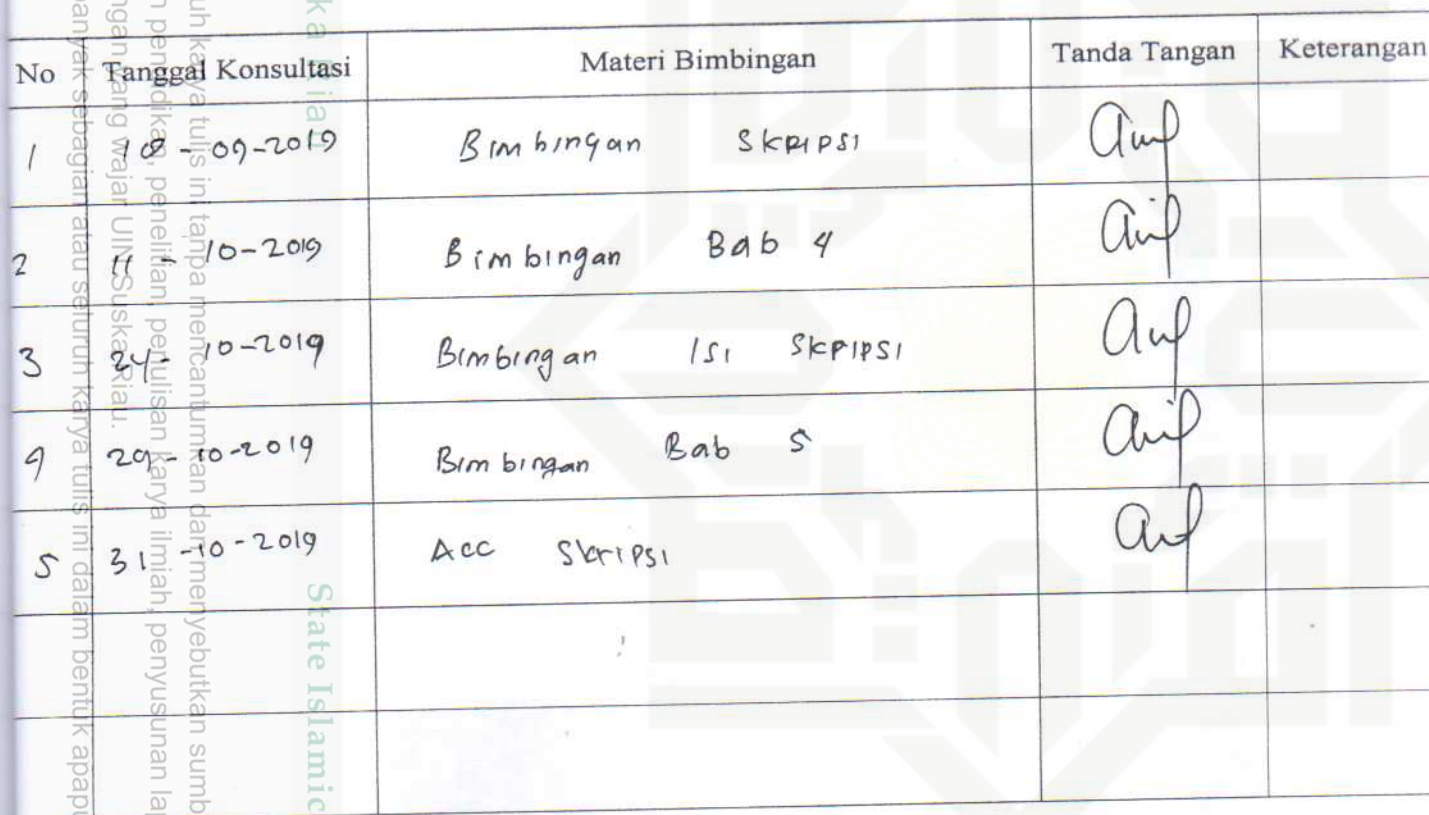 No Tanggal Konsultasi Materi Bimbingan Tanda Tangan Keterangan
1 18-09-2019 Bimbingan Skripsi
2 11-10-2019 Bimbingan Bab 4
3 24-10-2019 Bimbingan Isi Skripsi
4 29-10-2019 Bimbingan Bab 5
5 31-10-2019 Acc Skripsi
ka Ria
State Islamic
uh karya tulis ini tanpa mencantumkan dan menyebutkan sumb
n pendidikan, penelitian, penulisan karya ilmiah, penyusunan la
ngan yang wajar UIN Suska Riau.
banyak sebagian atau seluruh karya tulis ini dalam bentuk apapu